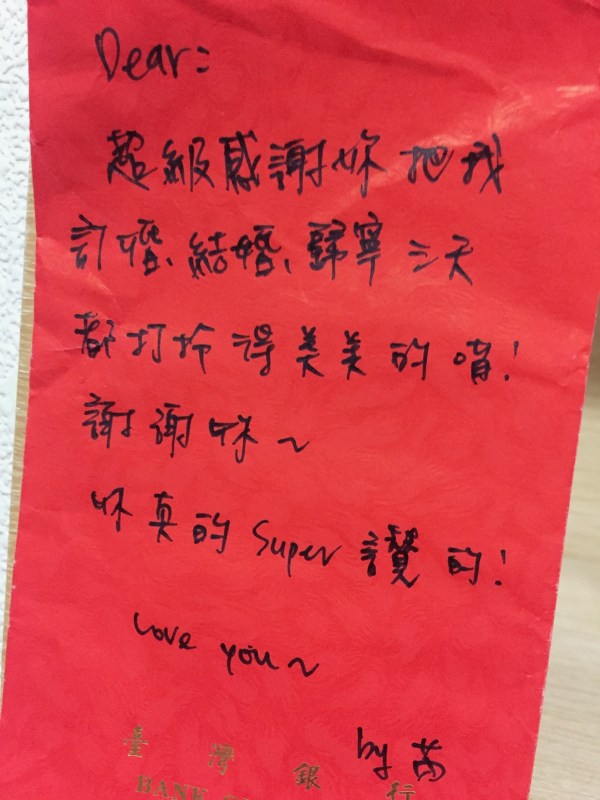 Dear:
超級感謝妳把我
訂婚、結婚、歸寧三天
都打扮得美美的唷!
謝謝妳~
妳真的 Super 讚的!
Love you~
by 芮
臺灣銀行
BANK